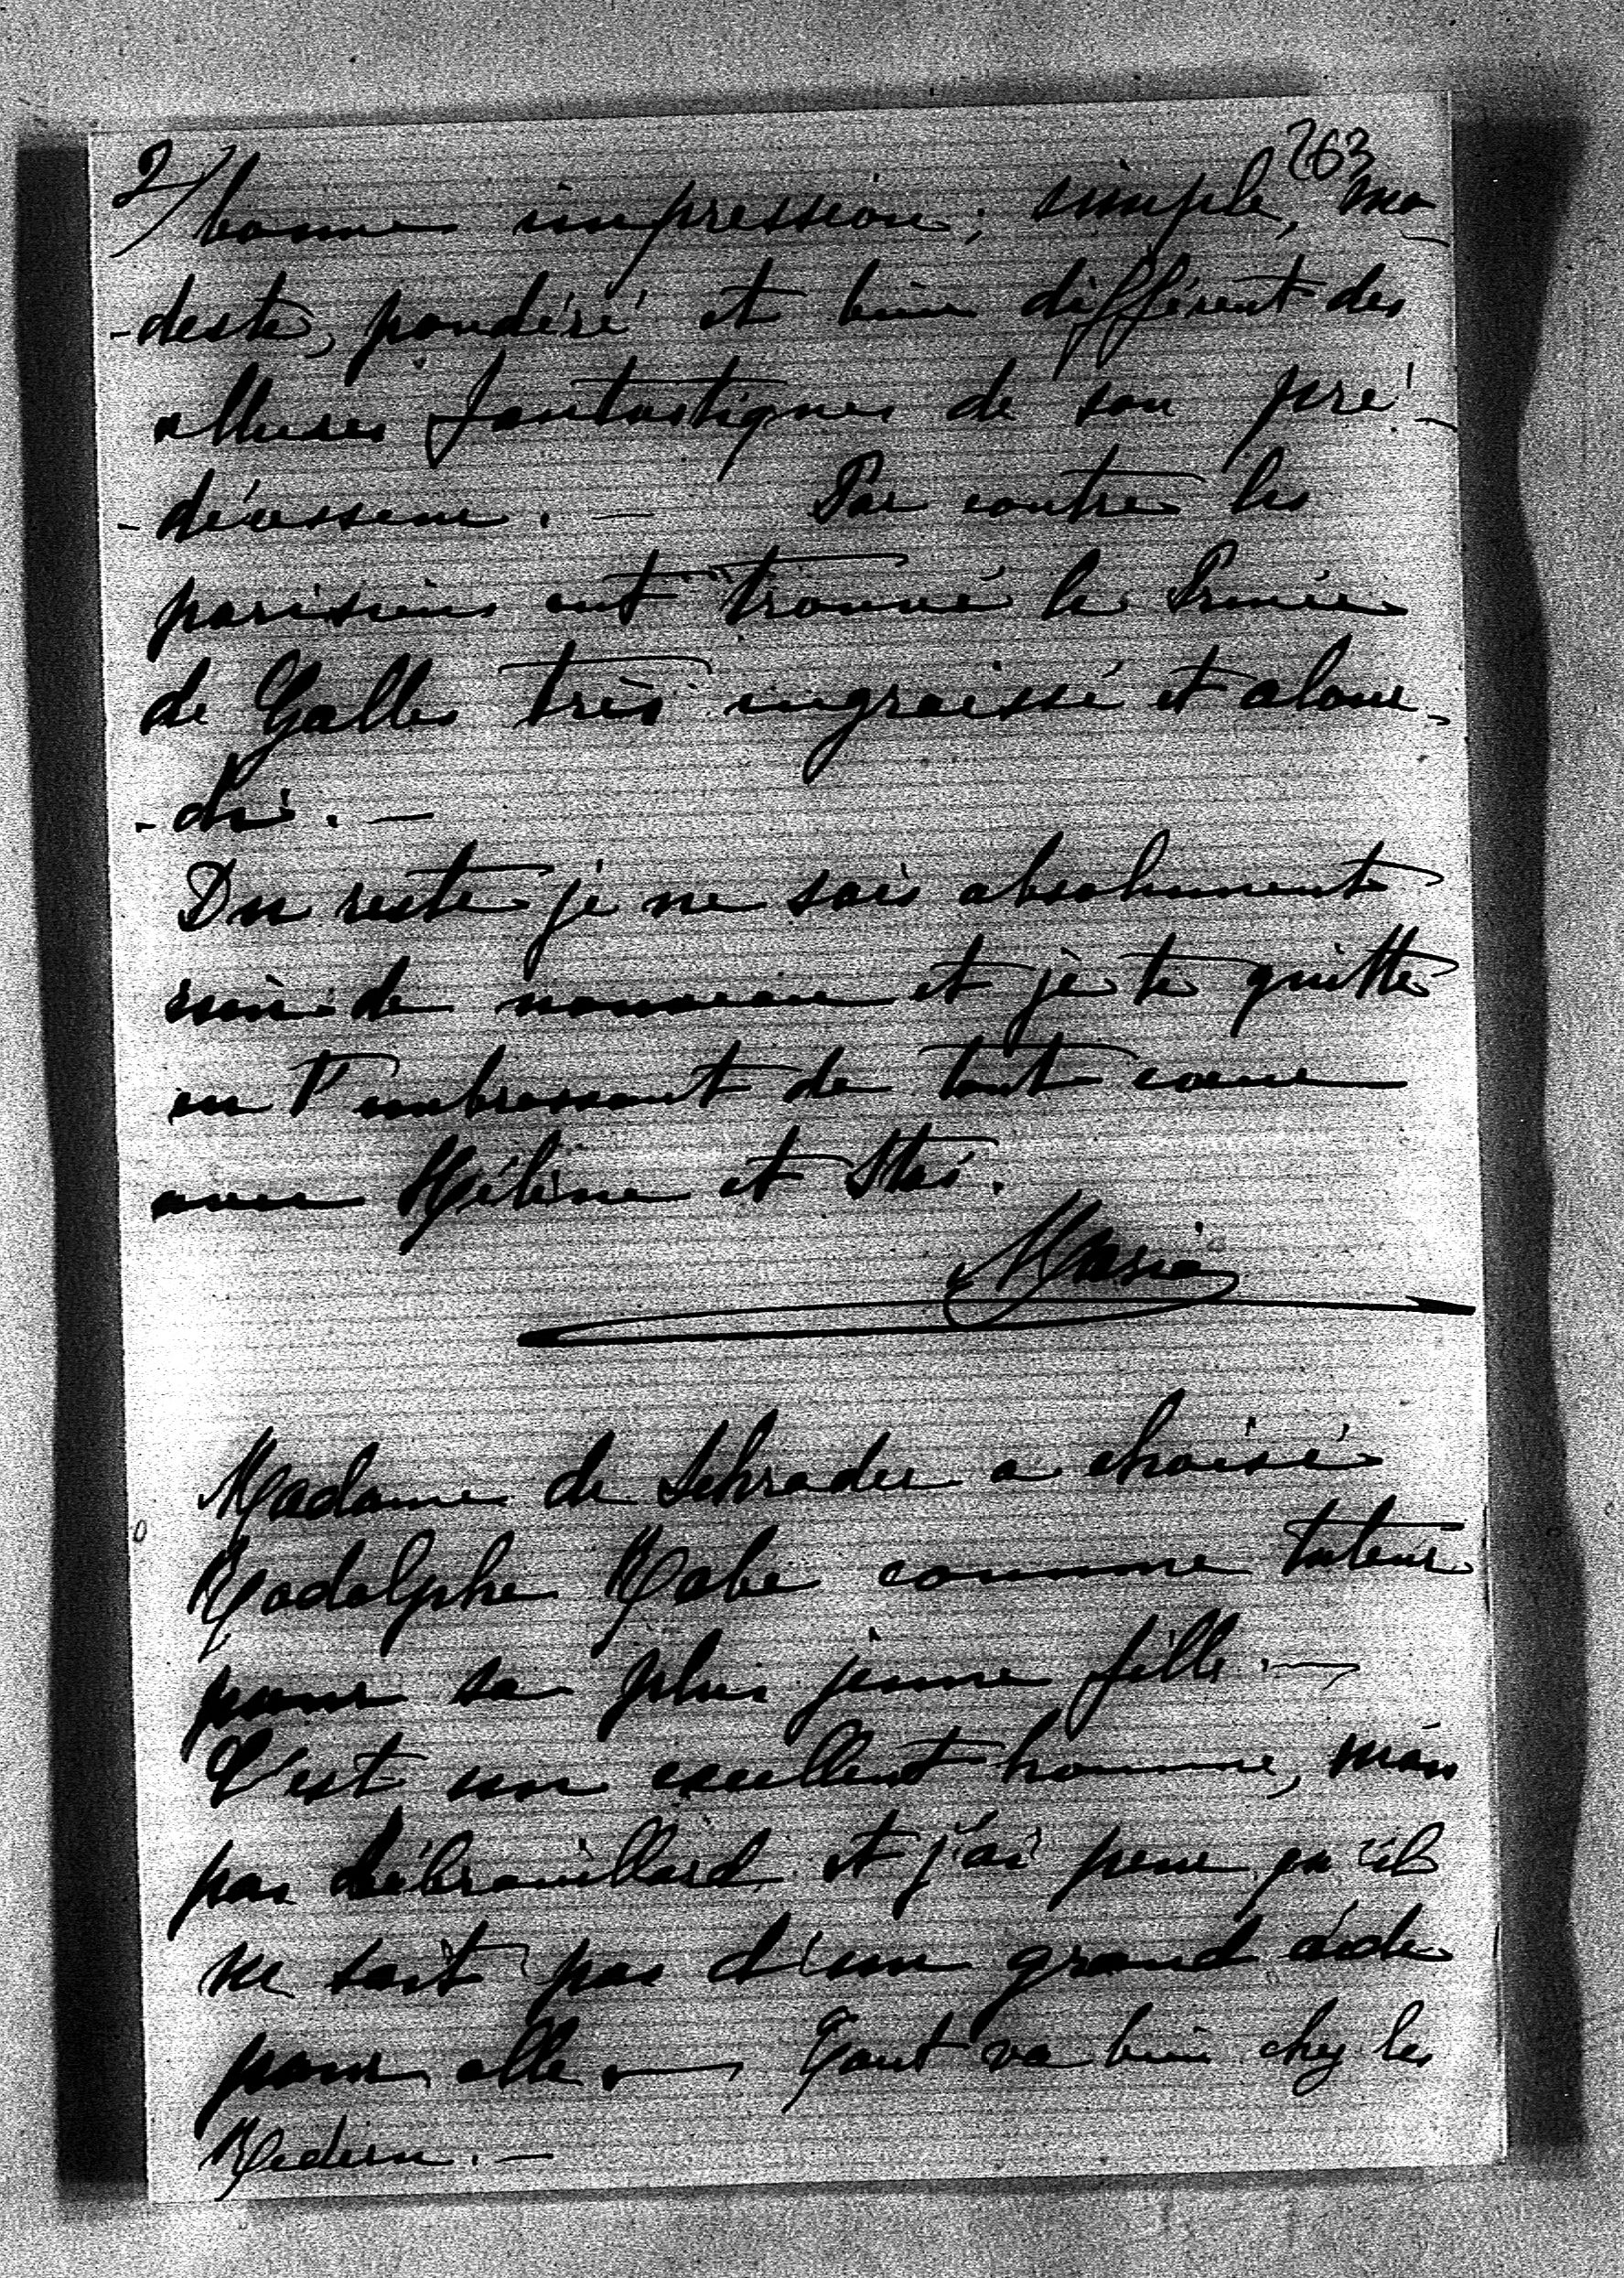 2/ 263
bonne impression; simple, mo-
-deste, pondéré et bien différent des
allures fantastiques de son pré-
-décesseur. — Par contre les
parisiens ont trouvé le Prince
de Galles très engraissé et alour-
-di. —
Du reste je ne sais absolument
rien de nouveau et je te quitte
en t'embrassant de tout cœur
avec Hélène et Sté.
Marie
Madame de Schrader a choisi
Rodolphe Rabe comme tuteur
pour sa plus jeune fille. —
C'est un excellent homme, mais
pas débrouillard et j'ai peur qu'il
ne soit pas d'un grand aide
pour elle. — Tout va bien chez les
Redern. —